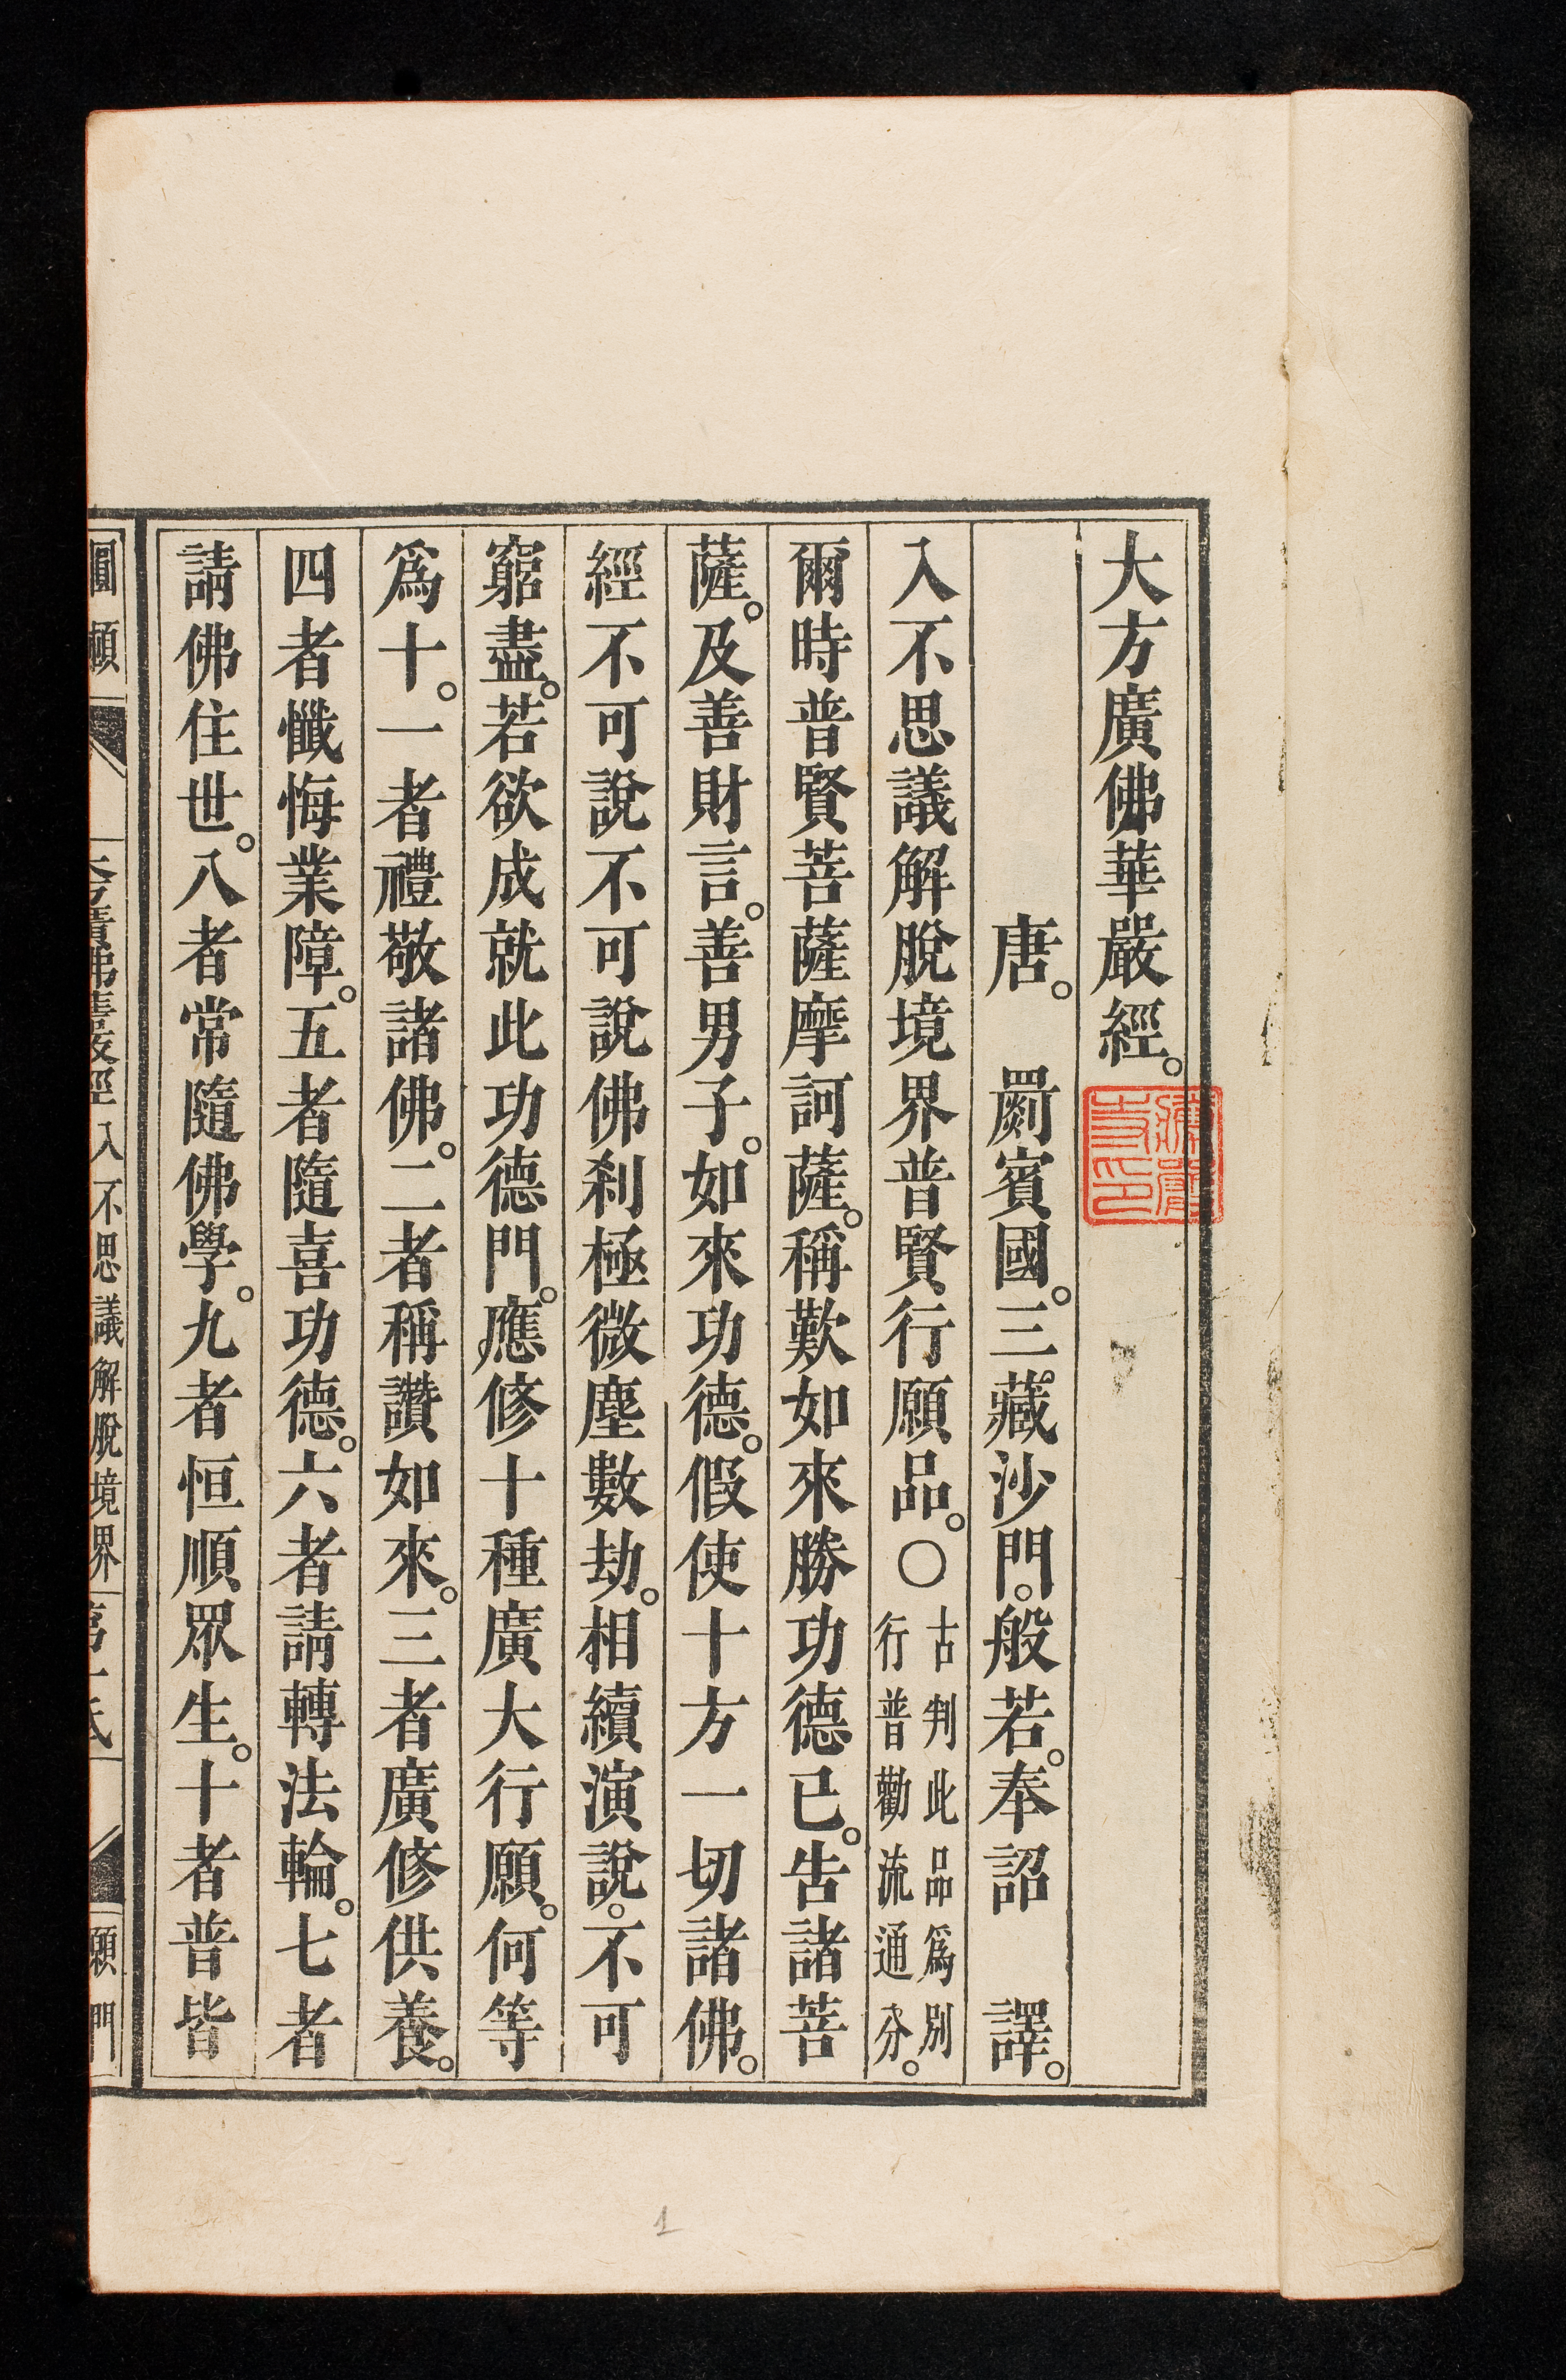 大方廣佛華嚴經。
唐。 罽賓國。三藏沙門。般若。奉詔 譯。
入不思議解脫境界普賢行願品。〇古判此品爲別
行普勸流通分。
爾時普賢菩薩摩訶薩。稱歎如來勝功德已。告諸菩
薩。及善財言。善男子。如來功德。假使十方一切諸佛。
經不可說不可說佛剎極微塵數劫。相續演說。不可
窮盡。若欲成就此功德門。應修十種廣大行願。何等
爲十。一者禮敬諸佛。二者稱讚如來。三者廣修供養。
四者懺悔業障。五者隨喜功德。六者請轉法輪。七者
請佛住世。八者常隨佛學。九者恒順眾生。十者普皆
入不思議解脫境界
願門
1